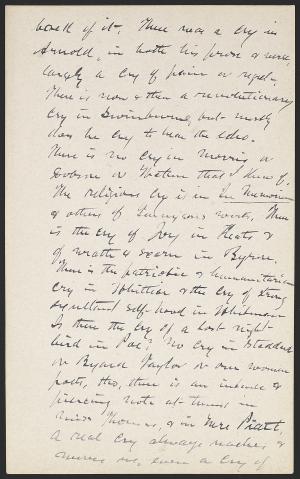 back of it. There was a cry in
Arnold, in both his prose & verse,
largely a cry of pain or regret.
There is now & then a revolutionary
cry in Swinburne, but mostly
does he cry to hear the echo.
There is no cry in Morris or
Dobson or Watson that I know of.
The religious cry is in In Memoriam
& others of Tennysons works. There
is the cry of Joy in Keats &
of wrath & scorn in Byron.
There is the patriotic & humanitarian
cry in Whittier & the cry of strong
exultant self-hood in Whitman
Is there the cry of a lost night
bird in Poe? No cry in Stedman
or Byard Taylor or our women
poets, tho, there is an intense &
piercing note at times in
Miss Thomas, & in Mrs Piatt.
A real cry always reaches &
moves us, even a cry of